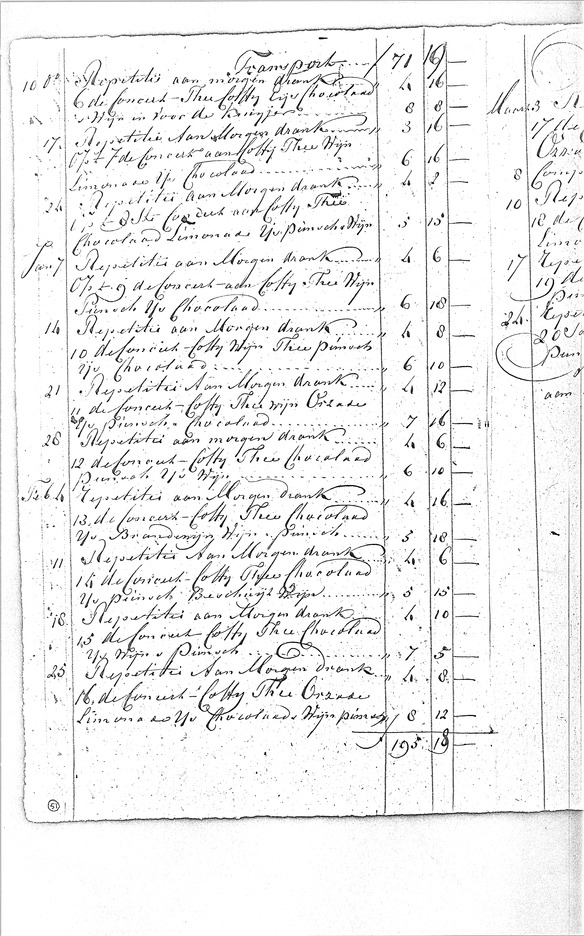 Transport / 71 19
10 Do Repetitie aan morgen drank 4 16 —
6 de Concert Thee Coffy Ijs Chocolaad
Wijn in voor de 8 8 —
17. Repetitie Aan Morgen drank 3 16 —
op 't 7 de Concert aan Coffy Thee Wijn
Limonade Ys Chocolaad 6 16 —
24 Repetitie aan Morgen drank 4 2 —
Concert aan Coffy Thee
Chocolaad Limonade Ys punsch Wijn 5 15 —
Jan 7 Repetitie aan Morgen drank 4 6 —
op 't 9 de Concert aan Coffy Thee Wijn
Punsch Ys Chocolaad 6 18 —
14 Repetitie aan Morgen drank 4 8 —
10 de Concert Coffy Wijn Thee Punsch
Ys Chocolaad 6 10 —
21 Repetitie Aan Morgen drank 4 12 —
11 de Concert Coffy Thee wijn Orzade
Ys Punsch Chocolaad 7 16 —
28 Repetitie aan morgen drank 4 6 —
12 de Concert Coffy Thee Chocolaad
Punsch Ys Wijn 6 10 —
Feb 4 Repetitie aan Morgen drank 4 16 —
13 de Concert Coffy Thee Chocolaad
Ys Brandewijn Wijn Punsch 5 18 —
11 Repetitie Aan Morgen drank 4 6 —
14 de Concert Coffy Thee Chocolaad
Ys Punsch Beschuijt Wijn 5 15 —
18 Repetitie aan Morgen drank 4 10 —
15 de Concert Coffy Thee Chocolaad
Ys Wijn Punsch 7 5 —
25 Repetitie Aan Morgen drank 4 8 —
16 de Concert Coffy Thee Orzade
Limonade Ys Chocolaad Wijn punsch 8 12 —
195 18 —
51
Maart 3
17 de
Orza
8
10 Rep
18 de
Limo
17 Repe
19 de
24 Repe
20
Pun
aan